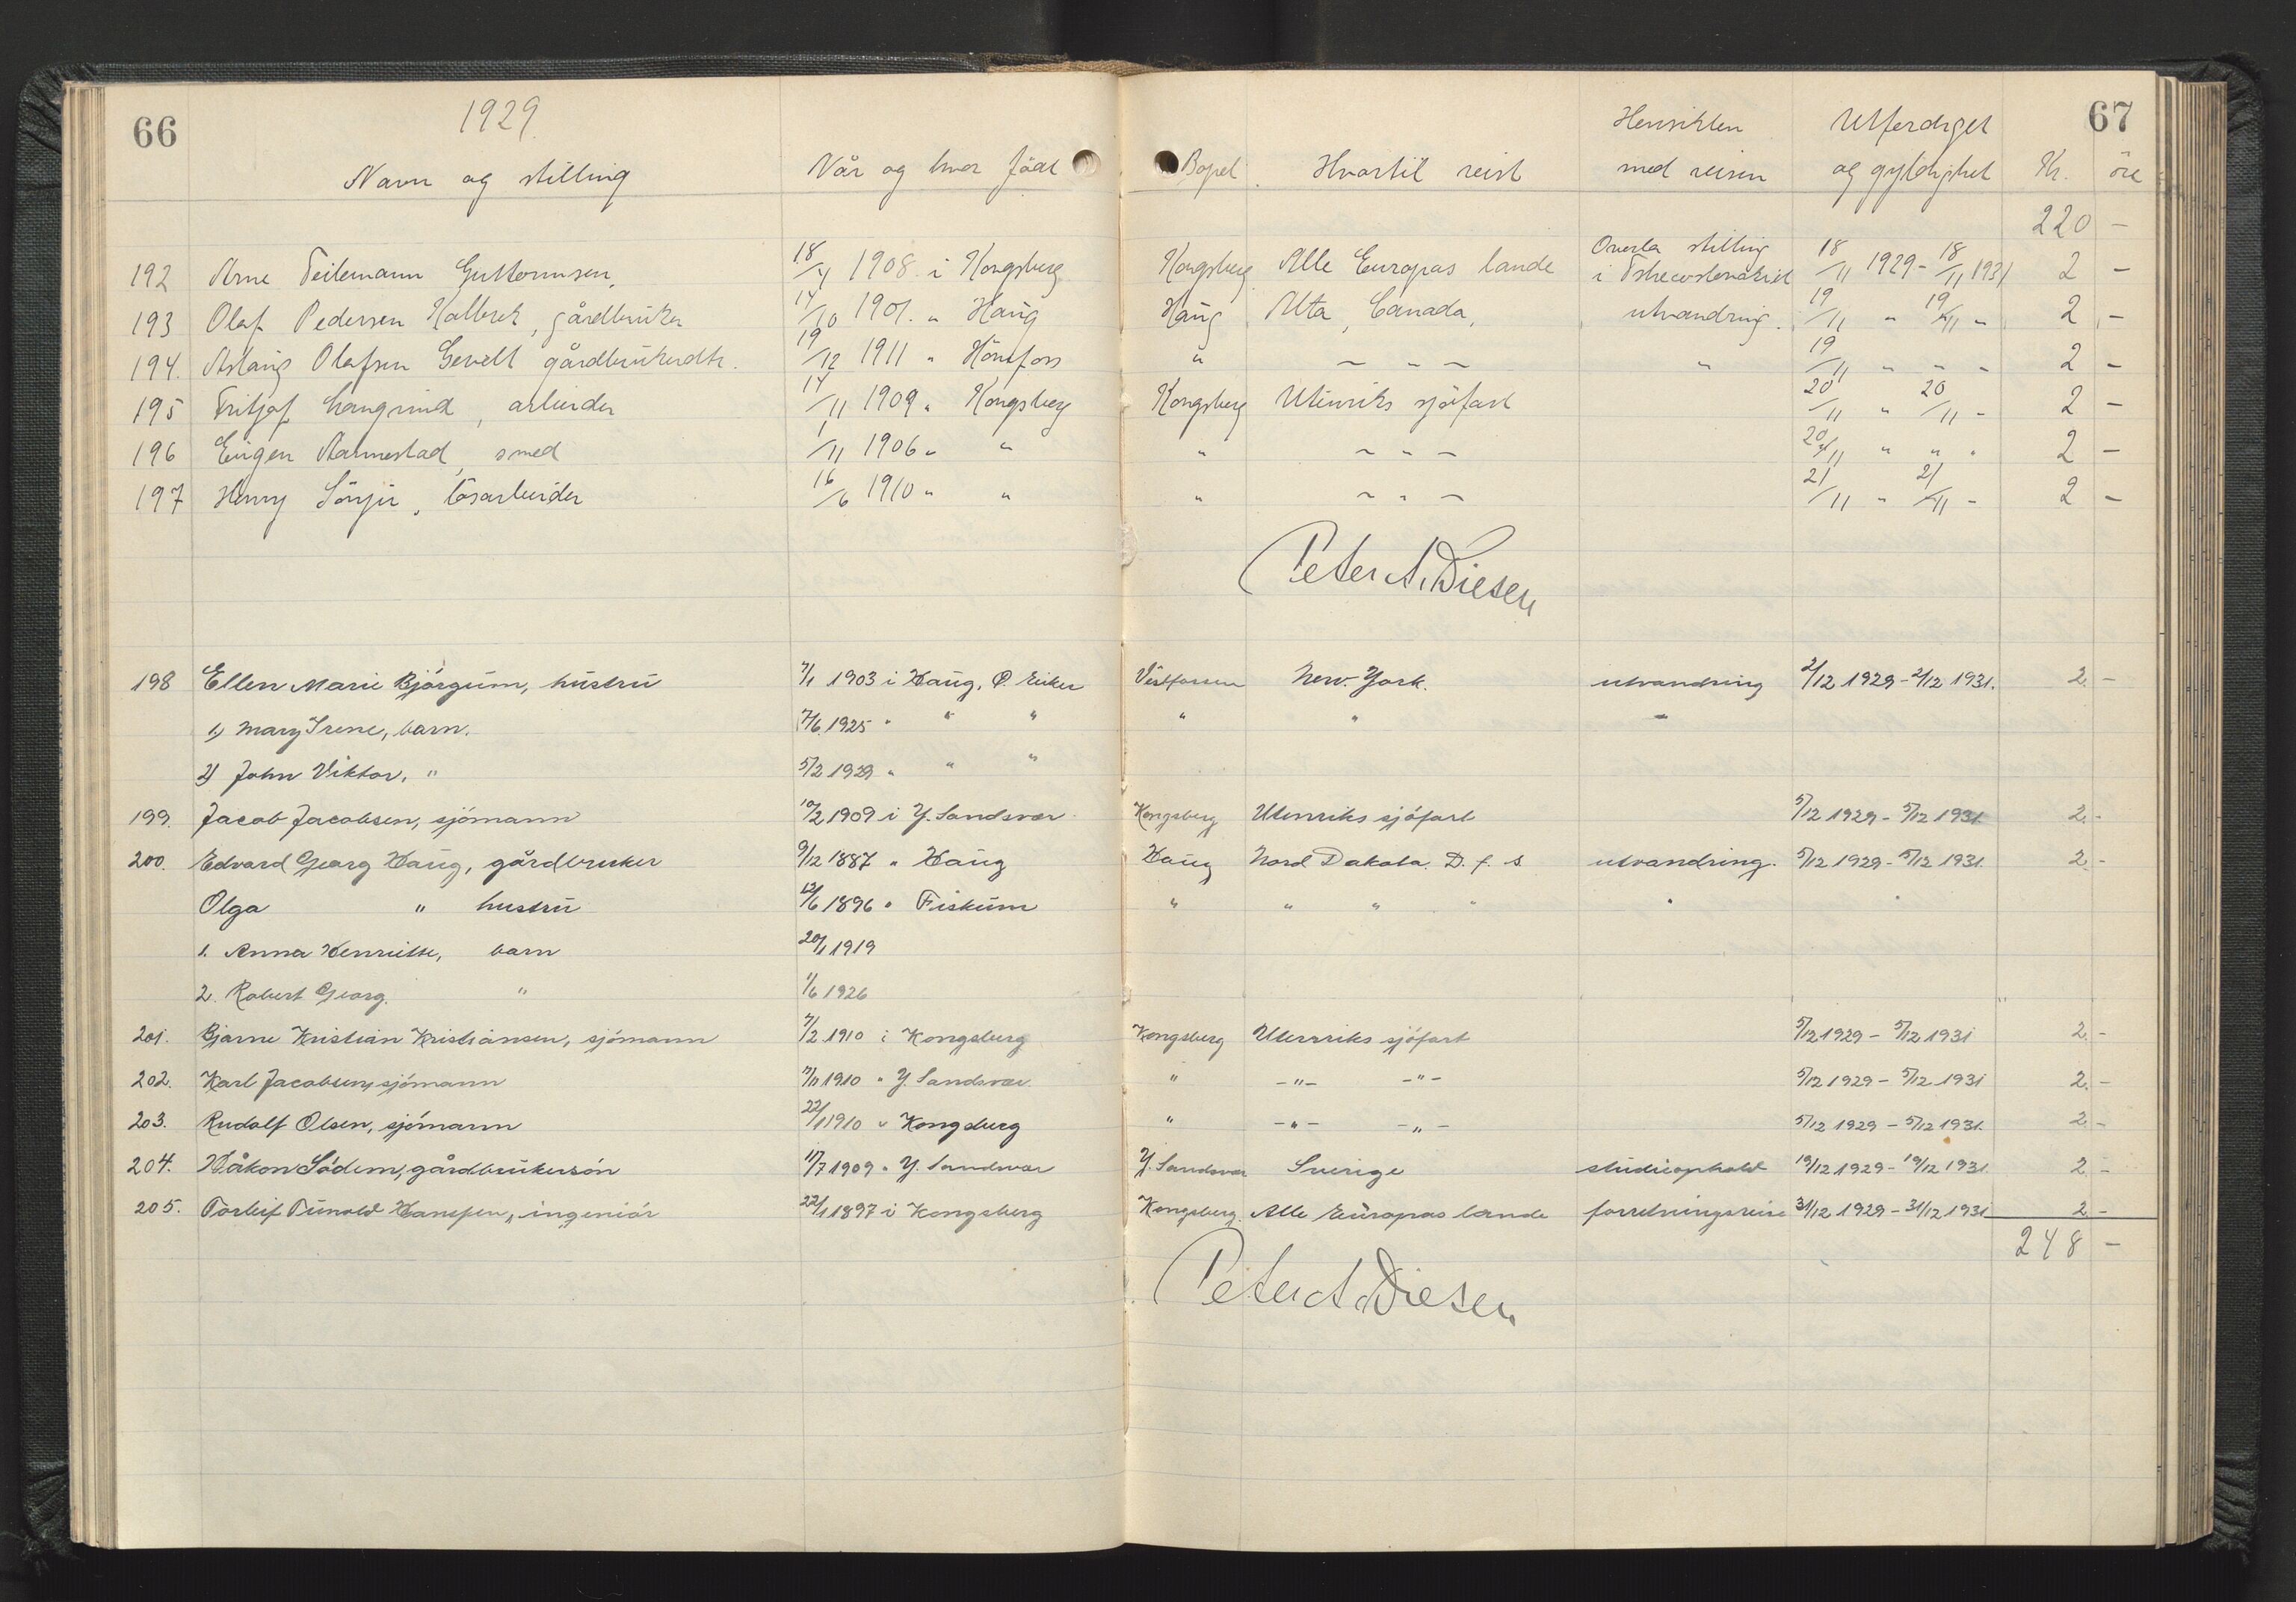 66 1929. 67
Navn og stilling Når og hvor född Bopæl Hvortil reist Hensikten med reisen Utferdiget og gyldighet Kr. öre
220 -
192 Arne Teilemann Guttormsen, 18/4 1908 i Kongsberg Kongsberg Alle Europas lande Overta stilling i 18/11 1929 - 18/11 1931 2 -
193 Olaf Pedersen, gårdbruker 14/10 1901. " Haug Haug Alta, Canada, utvandring. 19/11 " 19/11 " 2 -
194. Aslaug Olafsen Gevelt gårdbrukerdtr. 19/12 1911 " Hönefoss " " " " " 19/11 " " " 2 -
195 Fritjof Langrind, arbeider 14/11 1909 " Kongsberg Kongsberg Utenriks sjöfart 20/11 " 20/11 " 2 -
196 Eugen Aannestad, smed 1/11 1906 " " " " " " 20/11 " " " 2 -
197 Henry, lösarbeider 16/6 1910 " " " " " " 21/11 " 21/11 " 2 -
Peter A. Diesen
198 Ellen Marie Bjørgum, hustru 7/1 1903 i Haug, Ø. Eiker Vestfossen New-York. utvandring 2/12 1929 - 2/12 1931. 2 -
1) Mary Irene, barn. 7/6 1925 " " " " " "
2) John Viktor, " 5/2 1929 " " "
199. Jacob Jacobsen, sjómann 10/2 1909 i Y. Sandsvær Kongsberg Utenriks sjófart 5/12 1929 - 5/12 1931. 2. -
200. Edvard Georg Haug, gårdbruker 9/12 1887 " Haug Haug Nord Dakota. D. f. s. utvandring. 5/12 1929 - 5/12 1931. 2 -
Olga " hustru 12/6 1896 " Fiskum " " " " " "
1. Anna Henriette, barn 20/1 1919
2. Robert Georg. " 1/6 1926
201. Bjarne Kristian Kristiansen, sjómann 7/2 1910 i Kongsberg Kongsberg Utenriks sjófart 5/12 1929 - 5/12 1931 2. -
202. Karl Jacobsen, sjómann 7/11 1910 " Y. Sandsvær " -"- -"- 5/12 1929 - 5/12 1931 2. -
203. Rudolf Olsen, sjómann 22/1 1910 " Kongsberg " -"- -"- 5/12 1929 - 5/12 1931. 2 -
204. Håkon Södem, gårdbrukersón 11/7 1909 " Y. Sandsvær Y. Sandsvær Sverige studieophold 19/12 1929 - 19/12 1931 2 -
205. Torleif Hanssen, ingeniór 22/1 1897 i Kongsberg Kongsberg. Alle Europas lande forretningsreise 31/12 1929 - 31/12 1931 2 -
248 -
Peter A. Diesen